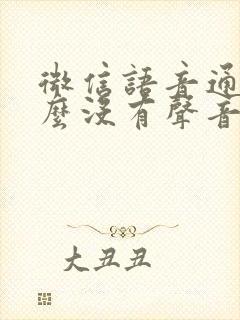 微信語音通
麼沒有聲音
大丑丑